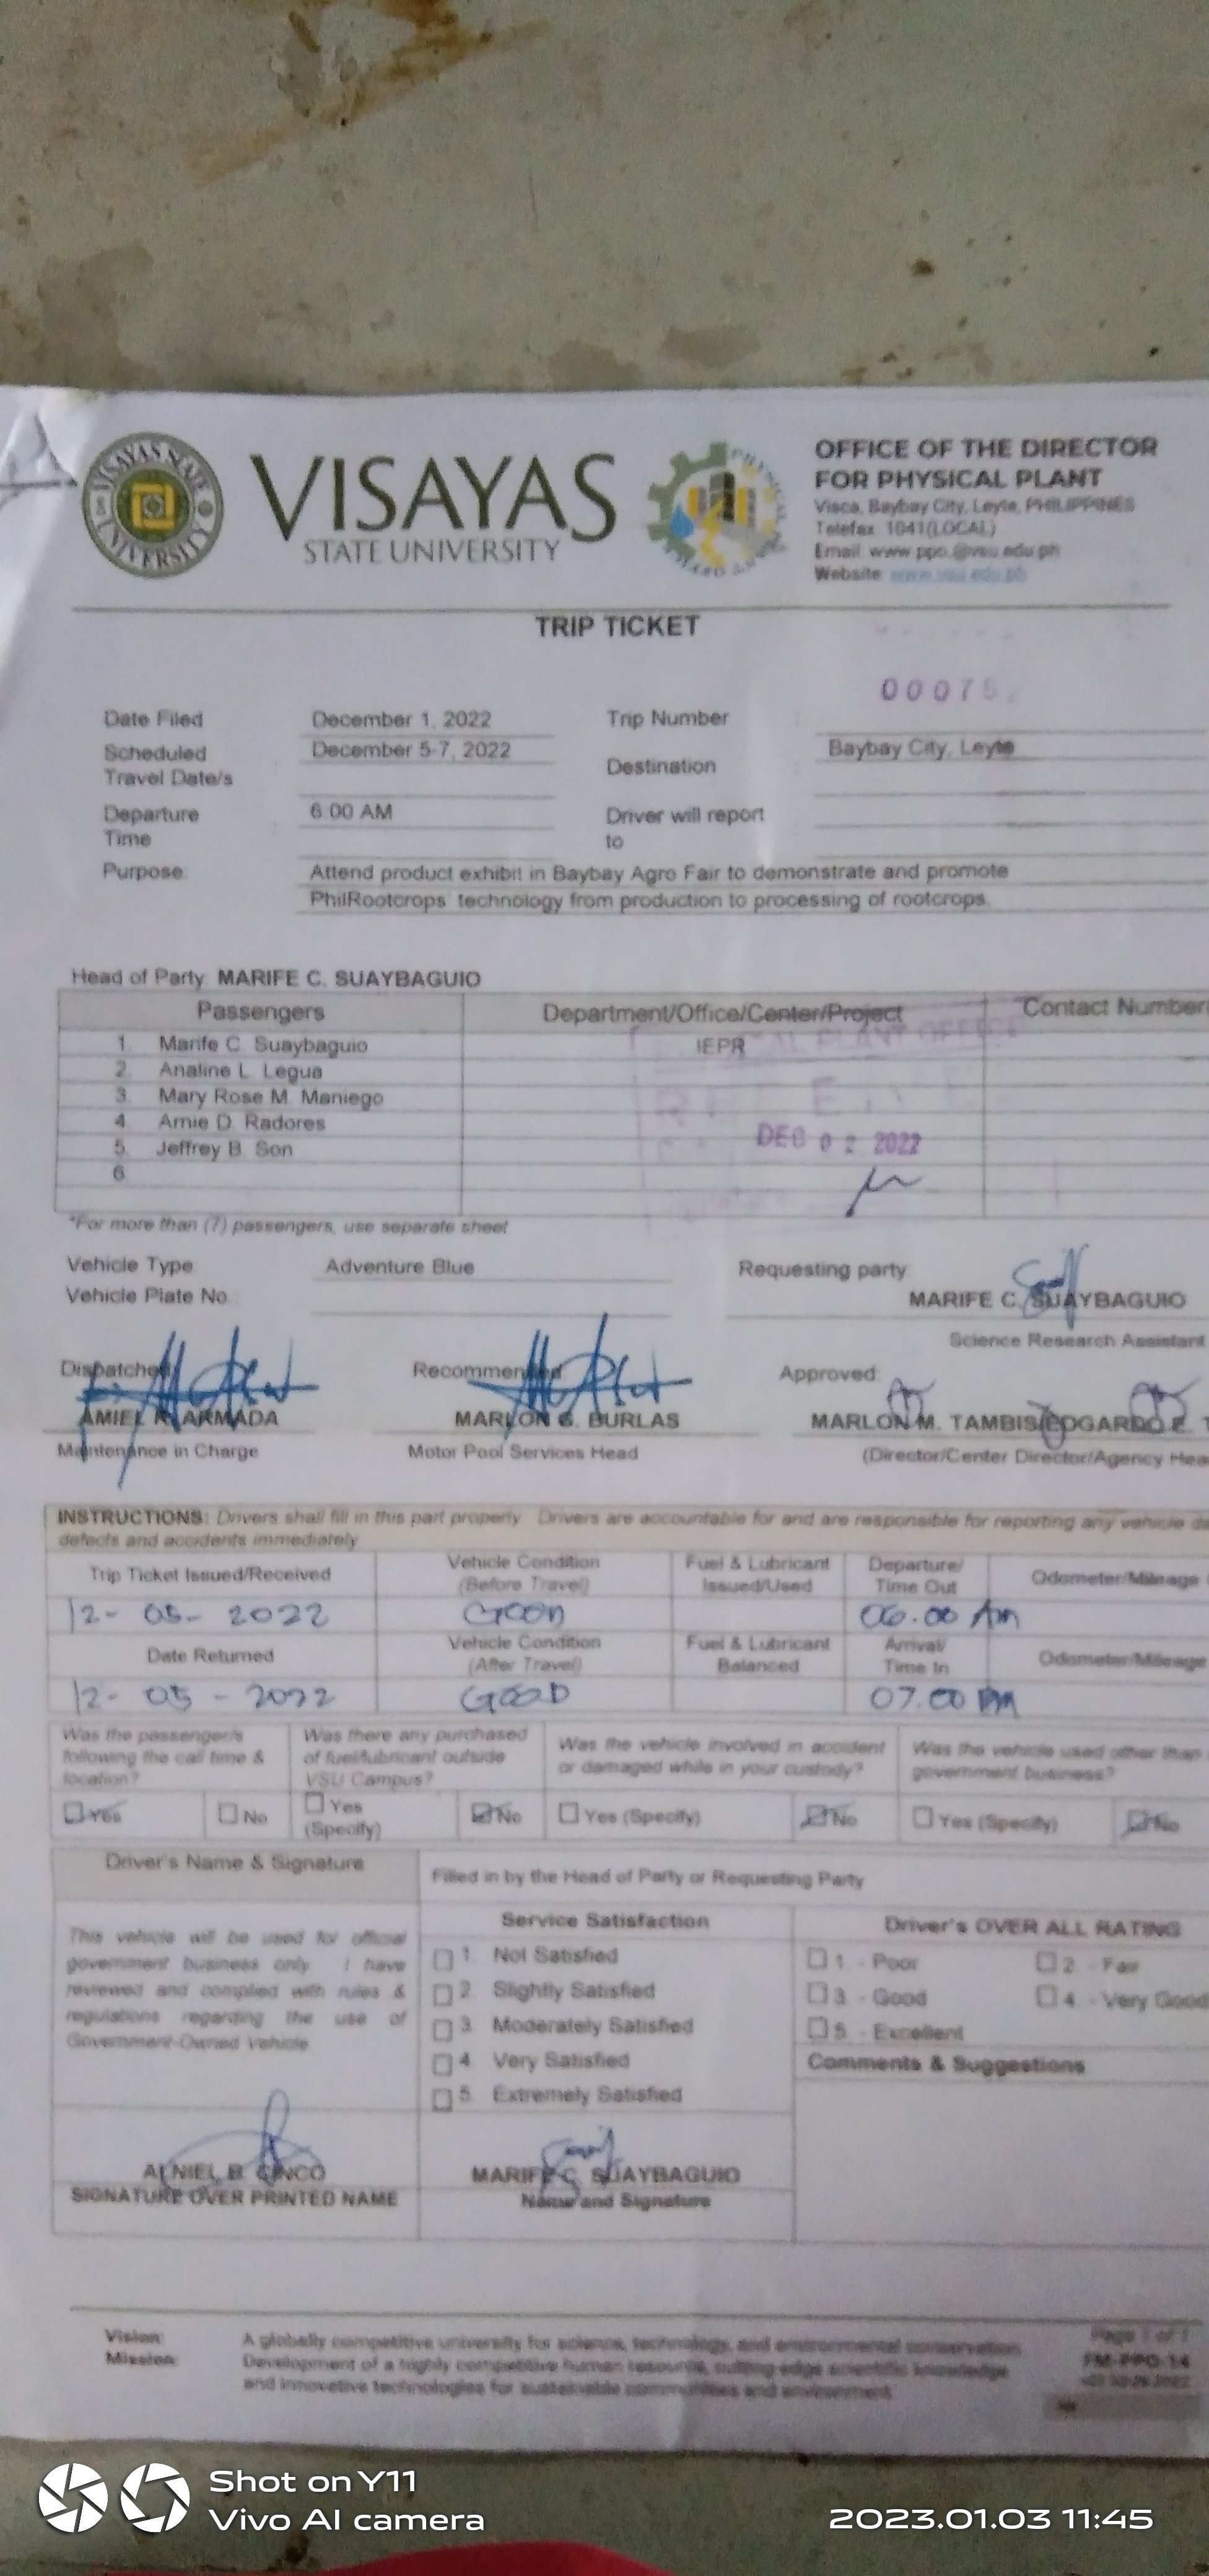 VISAYAS STATE UNIVERSITY
VISAYAS
STATE UNIVERSITY
OFFICE OF THE DIRECTOR
FOR PHYSICAL PLANT
Visca, Baybay City, Leyte, PHILIPPINES
Telefax 1041(LOCAL)
Email: www.ppo.@vsu.edu.ph
Website: www.vsu.edu.ph
TRIP TICKET
00075
Date Filed December 1, 2022 Trip Number
Scheduled Travel Date/s December 5-7, 2022 Destination Baybay City, Leyte
Departure Time 6:00 AM Driver will report to
Purpose: Attend product exhibit in Baybay Agro Fair to demonstrate and promote
PhilRootcrops' technology from production to processing of rootcrops.
Head of Party: MARIFE C. SUAYBAGUIO
Passengers Department/Office/Center/Project Contact Number
1. Marife C. Suaybaguio IEPR
2. Analine L. Legua
3. Mary Rose M. Maniego
4. Arnie D. Radores
5. Jeffrey B. Son
6.
PLANT OFFICE
DEC 02 2022
*For more than (7) passengers, use separate sheet
Vehicle Type Adventure Blue Requesting party:
Vehicle Plate No. MARIFE C. SUAYBAGUIO
Science Research Assistant
Dispatched: Recommended: Approved:
AMIEL R. ARMADA MARLON G. BURLAS MARLON M. TAMBIS/EDGARDO E. T
Maintenance in Charge Motor Pool Services Head (Director/Center Director/Agency Hea
INSTRUCTIONS: Drivers shall fill in this part properly. Drivers are accountable for and are responsible for reporting any vehicle
defects and accidents immediately
Trip Ticket Issued/Received Vehicle Condition (Before Travel) Fuel & Lubricant Issued/Used Departure/ Time Out Odometer/Mileage
12-05-2022 GOOD 06:00 AM
Date Returned Vehicle Condition (After Travel) Fuel & Lubricant Balanced Arrival/ Time In Odometer/Mileage
12-05-2022 GOOD 07:00 PM
Was the passenger/s following the call time & location? Was there any purchased of fuel/lubricant outside VSU Campus? Was the vehicle involved in accident or damaged while in your custody? Was the vehicle used other than government business?
Yes No Yes (Specify) No Yes (Specify) No Yes (Specify) No
Driver's Name & Signature Filled in by the Head of Party or Requesting Party
This vehicle will be used for official
government business only. I have
reviewed and complied with rules &
regulations regarding the use of
Government-Owned Vehicle.
Service Satisfaction
1. Not Satisfied
2. Slightly Satisfied
3. Moderately Satisfied
4. Very Satisfied
5. Extremely Satisfied
Driver's OVER ALL RATING
1. - Poor 2. - Fair
3. - Good 4. - Very Good
5. - Excellent
Comments & Suggestions
ALNIEL B. CINCO MARIFE C. SUAYBAGUIO
SIGNATURE OVER PRINTED NAME Name and Signature
Vision: A globally competitive university for science, technology, and environmental conservation.
Mission: Development of a highly competitive human resource, cutting-edge scientific knowledge
and innovative technologies for sustainable communities and environment.
Page 1 of 1
FM-PPO-14
Shot on Y11
Vivo AI camera
2023.01.03 11:45